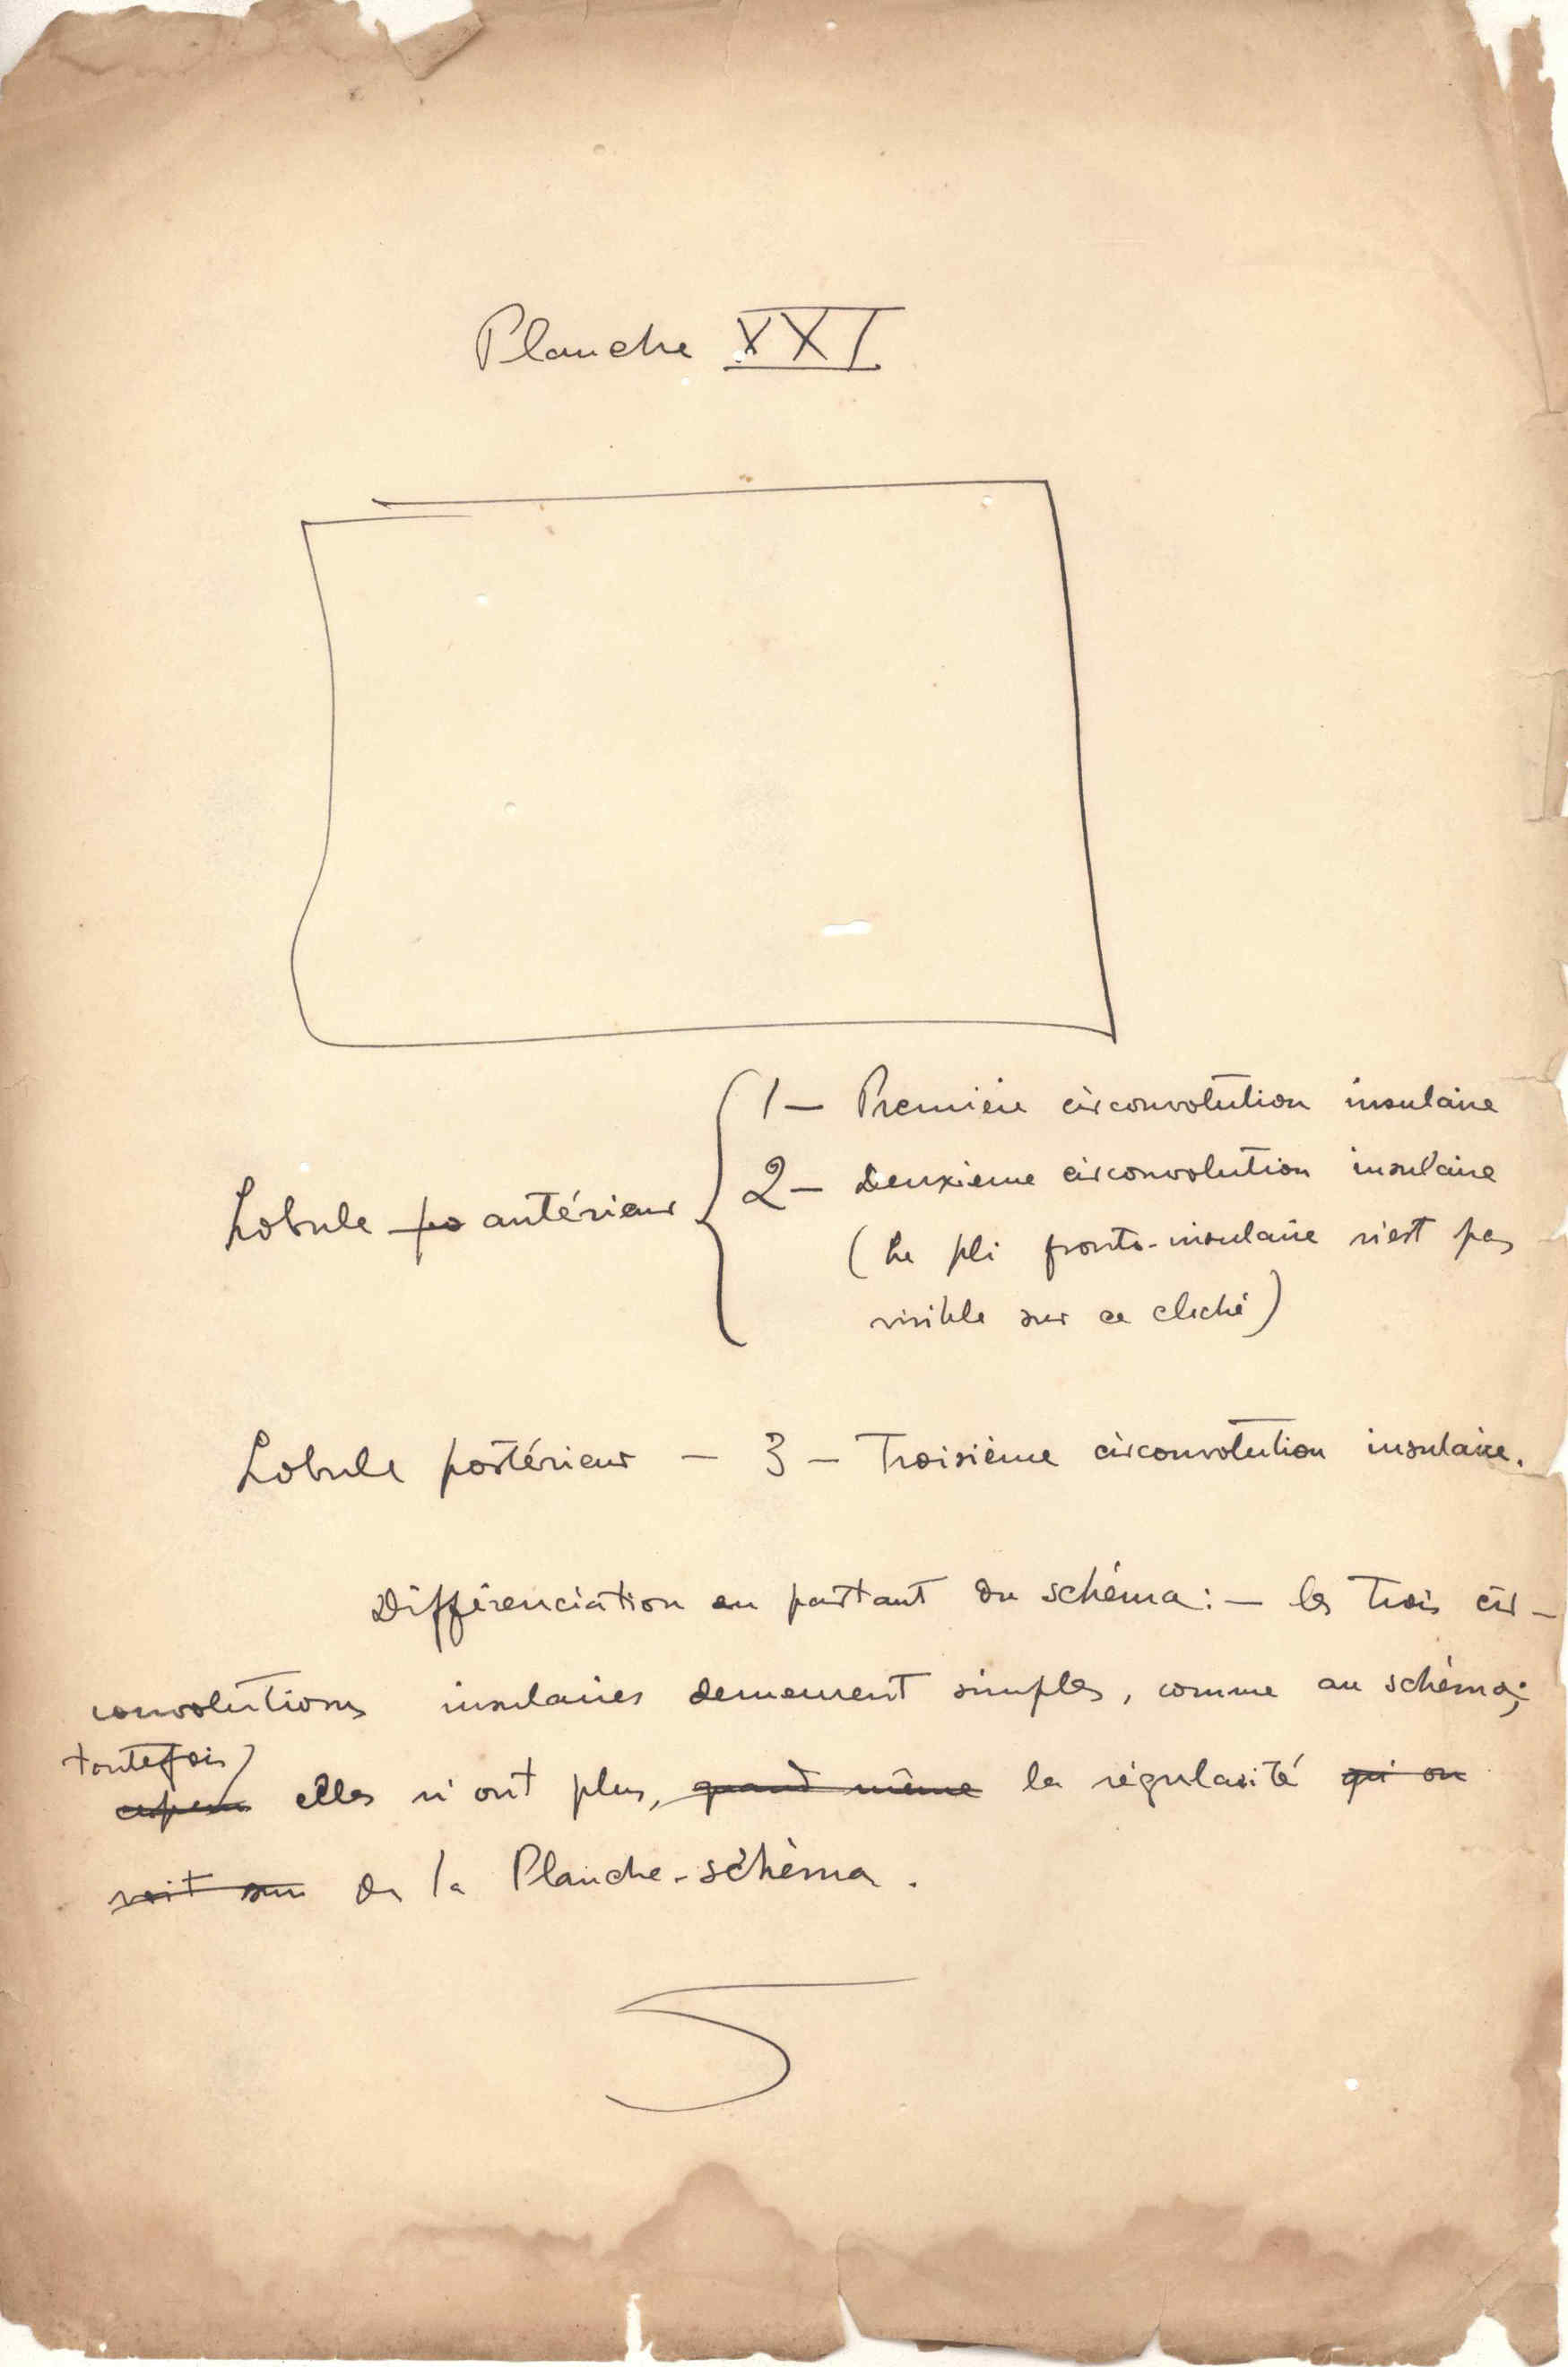 Planche XXI
1 — Première circonvolution insulaire
Lobule po antérieur 2 — Deuxième circonvolution insulaire
(Le pli fronto-insulaire n'est pas
visible sur ce cliché)
Lobule postérieur — 3 — Troisième circonvolution insulaire.
Différenciation en partant du schéma: — les trois cir-
convolutions insulaires demeurent simples, comme au schéma;
toutefois
elles n'ont plus, quand même la régularité qui on
voit sur de la Planche-schéma.